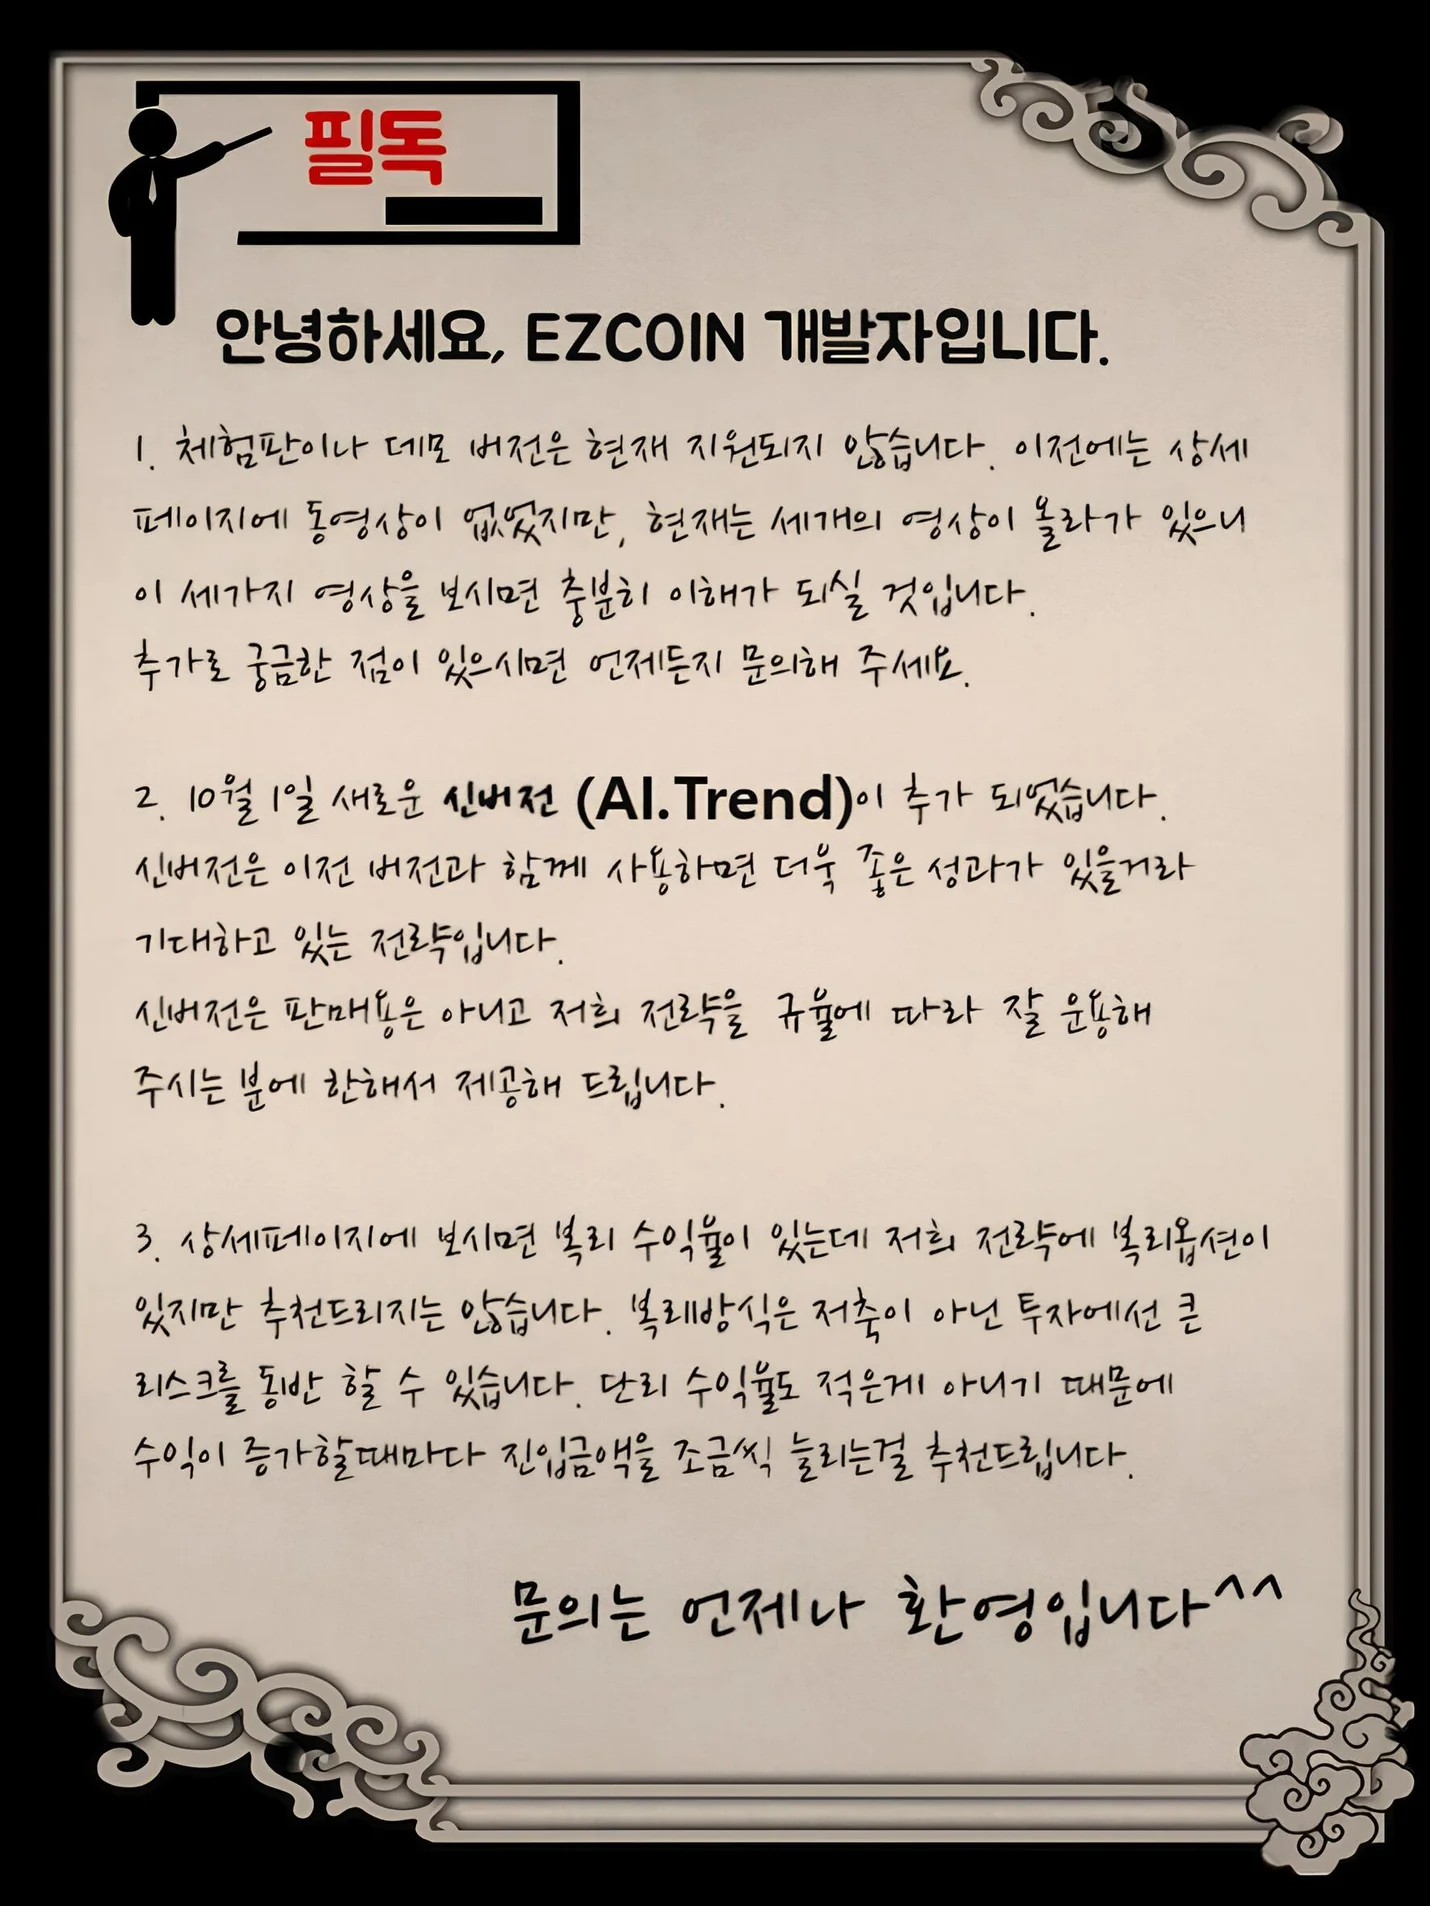 필독
안녕하세요, EZCOIN 개발자입니다.
1. 체험판이나 데모 버전은 현재 지원되지 않습니다. 이전에는 상세
페이지에 동영상이 없었지만, 현재는 세개의 영상이 올라가 있으니
이 세가지 영상을 보시면 충분히 이해가 되실 것입니다.
추가로 궁금한 점이 있으시면 언제든지 문의해 주세요.
2. 10월 1일 새로운 신버전 (AI.Trend)이 추가 되었습니다.
신버전은 이전 버전과 함께 사용하면 더욱 좋은 성과가 있을거라
기대하고 있는 전략입니다.
신버전은 판매용은 아니고 저희 전략을 규율에 따라 잘 운용해
주시는 분에 한해서 제공해 드립니다.
3. 상세페이지에 보시면 복리 수익율이 있는데 저희 전략에 복리옵션이
있지만 추천드리지는 않습니다. 복레방식은 저축이 아닌 투자에선 큰
리스크를 동반 할 수 있습니다. 단리 수익율도 적은게 아니기 때문에
수익이 증가할때마다 진입금액을 조금씩 늘리는걸 추천드립니다.
문의는 언제나 환영입니다^^